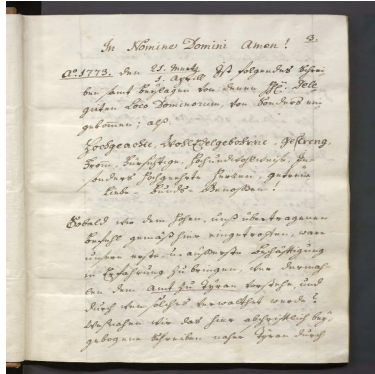 In Nomine Domini Amen! 3.
Aº. 1773. den 21. Martz
1. Aprill Ist folgendes Schrei-
ben samt Beylagen von denen HH. Dele-
guirten Loco Dominorum, von Sonders ein-
gekommen; als
Hochgeachte, WohlEdelgebohrne, Gestreng,
From, Fürsichtige, Hochundwohlweise, In-
sonders Hochgeehrte Herren, getreue
Liebe Bunds Genossen!
Sobald wir dem Hohen, uns übertragenen
Befehl gemäss hier eingetroffen, ware
unsere erste u. äusserste Beschäftigung
in Erfahrung zu bringen, wer dermah-
len dem Amt zu Tyran vorstehe, und
durch wen solches verwalthet werde?
Wesnahen wir das hier abschriftlich bey-
gebogene Schreiben naher Tyran durch